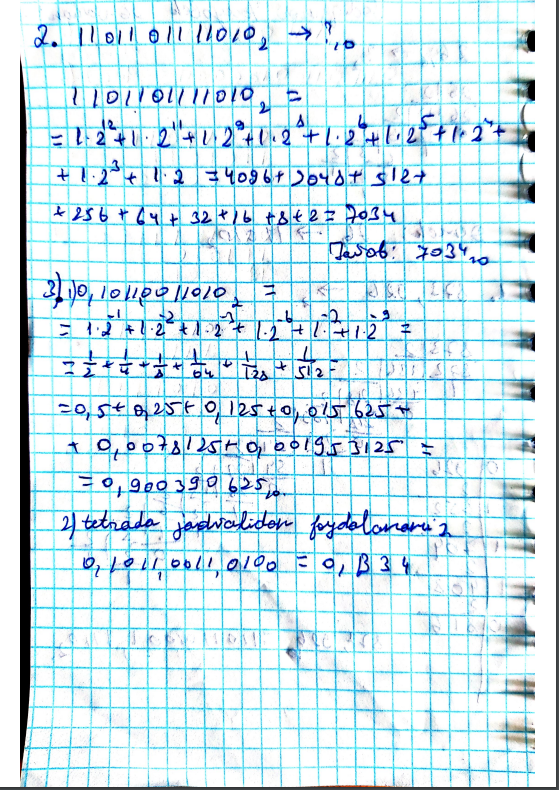 2. 1101101111010₂ → ?₁₀
1101101111010₂ =
= 1·2¹² + 1·2¹¹ + 1·2⁹ + 1·2⁸ + 1·2⁶ + 1·2⁵ + 1·2⁴ +
+ 1·2³ + 1·2 = 4096 + 2048 + 512 +
+ 256 + 64 + 32 + 16 + 8 + 2 = 7034
Javob: 7034₁₀
3) 1) 0,10110011010₂ =
= 1·2⁻¹ + 1·2⁻² + 1·2⁻³ + 1·2⁻⁶ + 1·⁻⁷ + 1·2⁻⁹ =
= 1/2 + 1/4 + 1/8 + 1/64 + 1/128 + 1/512 =
= 0,5 + 0,25 + 0,125 + 0,015625 +
+ 0,0078125 + 0,001953125 =
= 0,900390625₁₀.
2) tetrada jadvalidan foydalanamiz
0,1011,0011,0100 = 0,B34